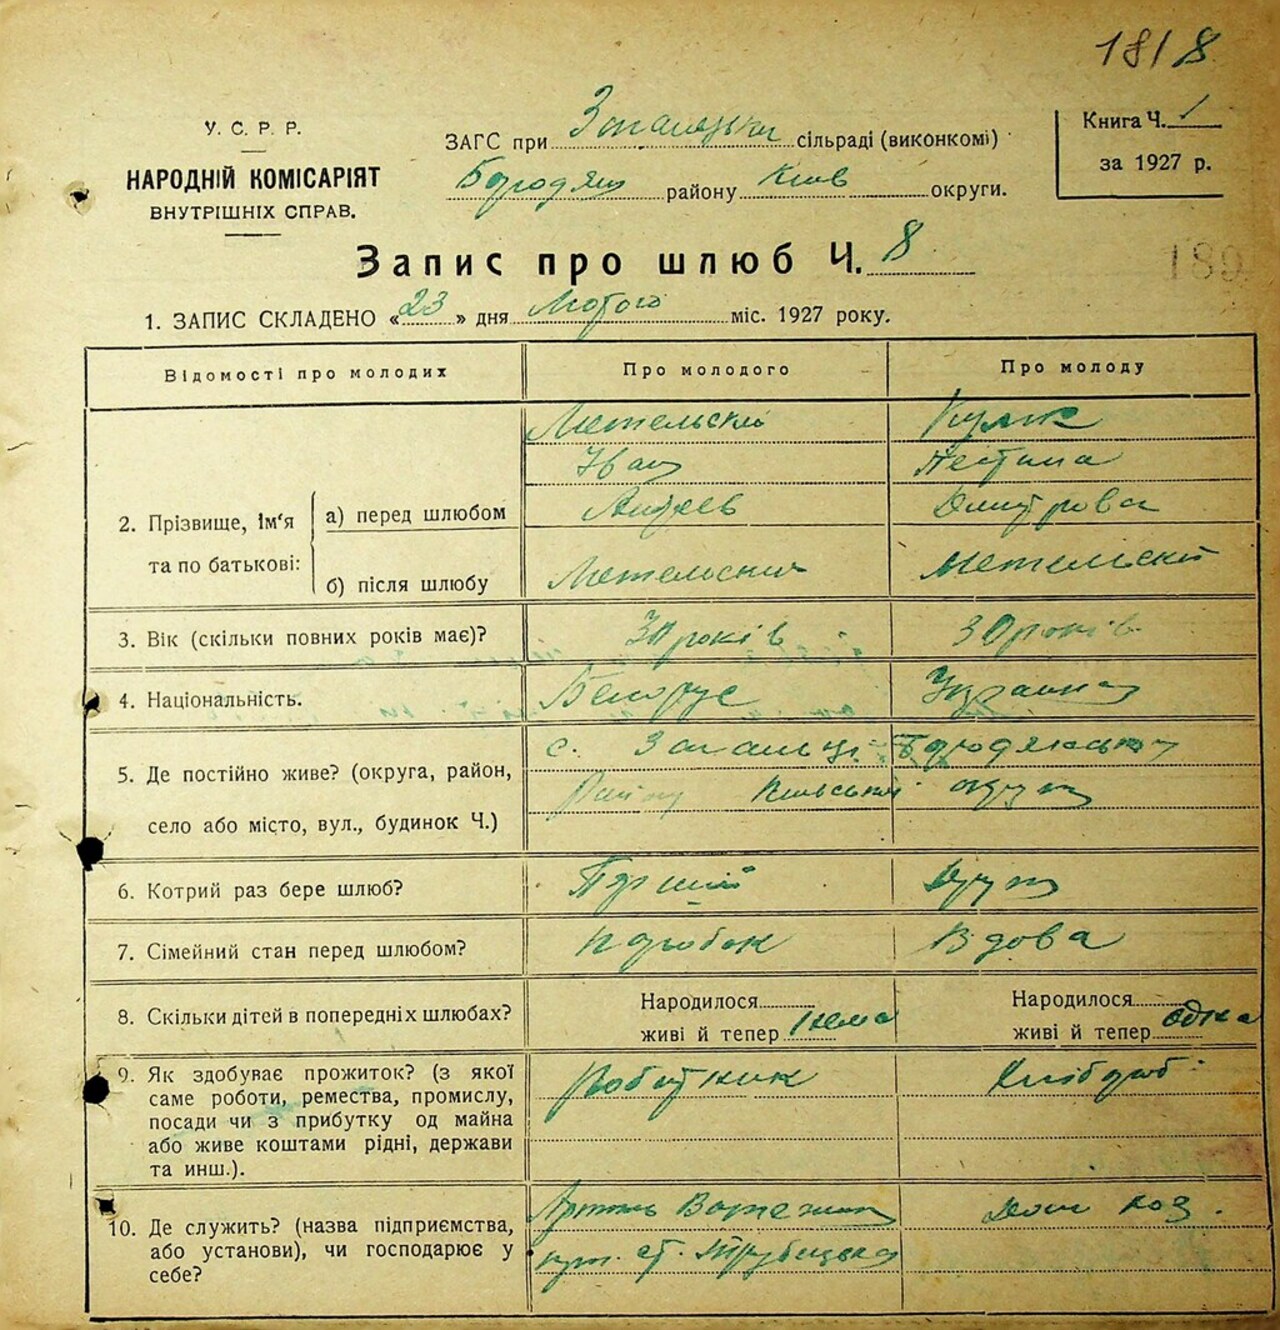 18/8
У. С. Р. Р.
НАРОДНІЙ КОМІСАРІЯТ
ВНУТРІШНІХ СПРАВ.
ЗАГС при сільраді (виконкомі)
району Київ округи.
Книга Ч. 1
за 1927 р.
Запис про шлюб Ч. 8
189
1. ЗАПИС СКЛАДЕНО «23» дня Лютого міс. 1927 року.
Відомості про молодих Про молодого Про молоду
2. Прізвище, ім‘я та по батькові:
а) перед шлюбом
Метельский
Іван
Андреев
Дмитрова
б) після шлюбу
Метельский Метельскій
3. Вік (скільки повних років має)? 30 років 30 років
4. Національність. Белорус Українка
5. Де постійно живе? (округа, район,
село або місто, вул., будинок Ч.)
с. Загальці Бородянського
Району Київської округи
6. Котрий раз бере шлюб? Перший Другий
7. Сімейний стан перед шлюбом? Парубок Вдова
8. Скільки дітей в попередніх шлюбах?
Народилося Народилося
живі й тепер нема живі й тепер одна
9. Як здобуває прожиток? (з якої
саме роботи, ремества, промислу,
посади чи з прибутку од майна
або живе коштами рідні, держави
та инш.).
Робітник Хлібороб
10. Де служить? (назва підприємства,
або установи), чи господарює у
себе?
Артіль
ст.